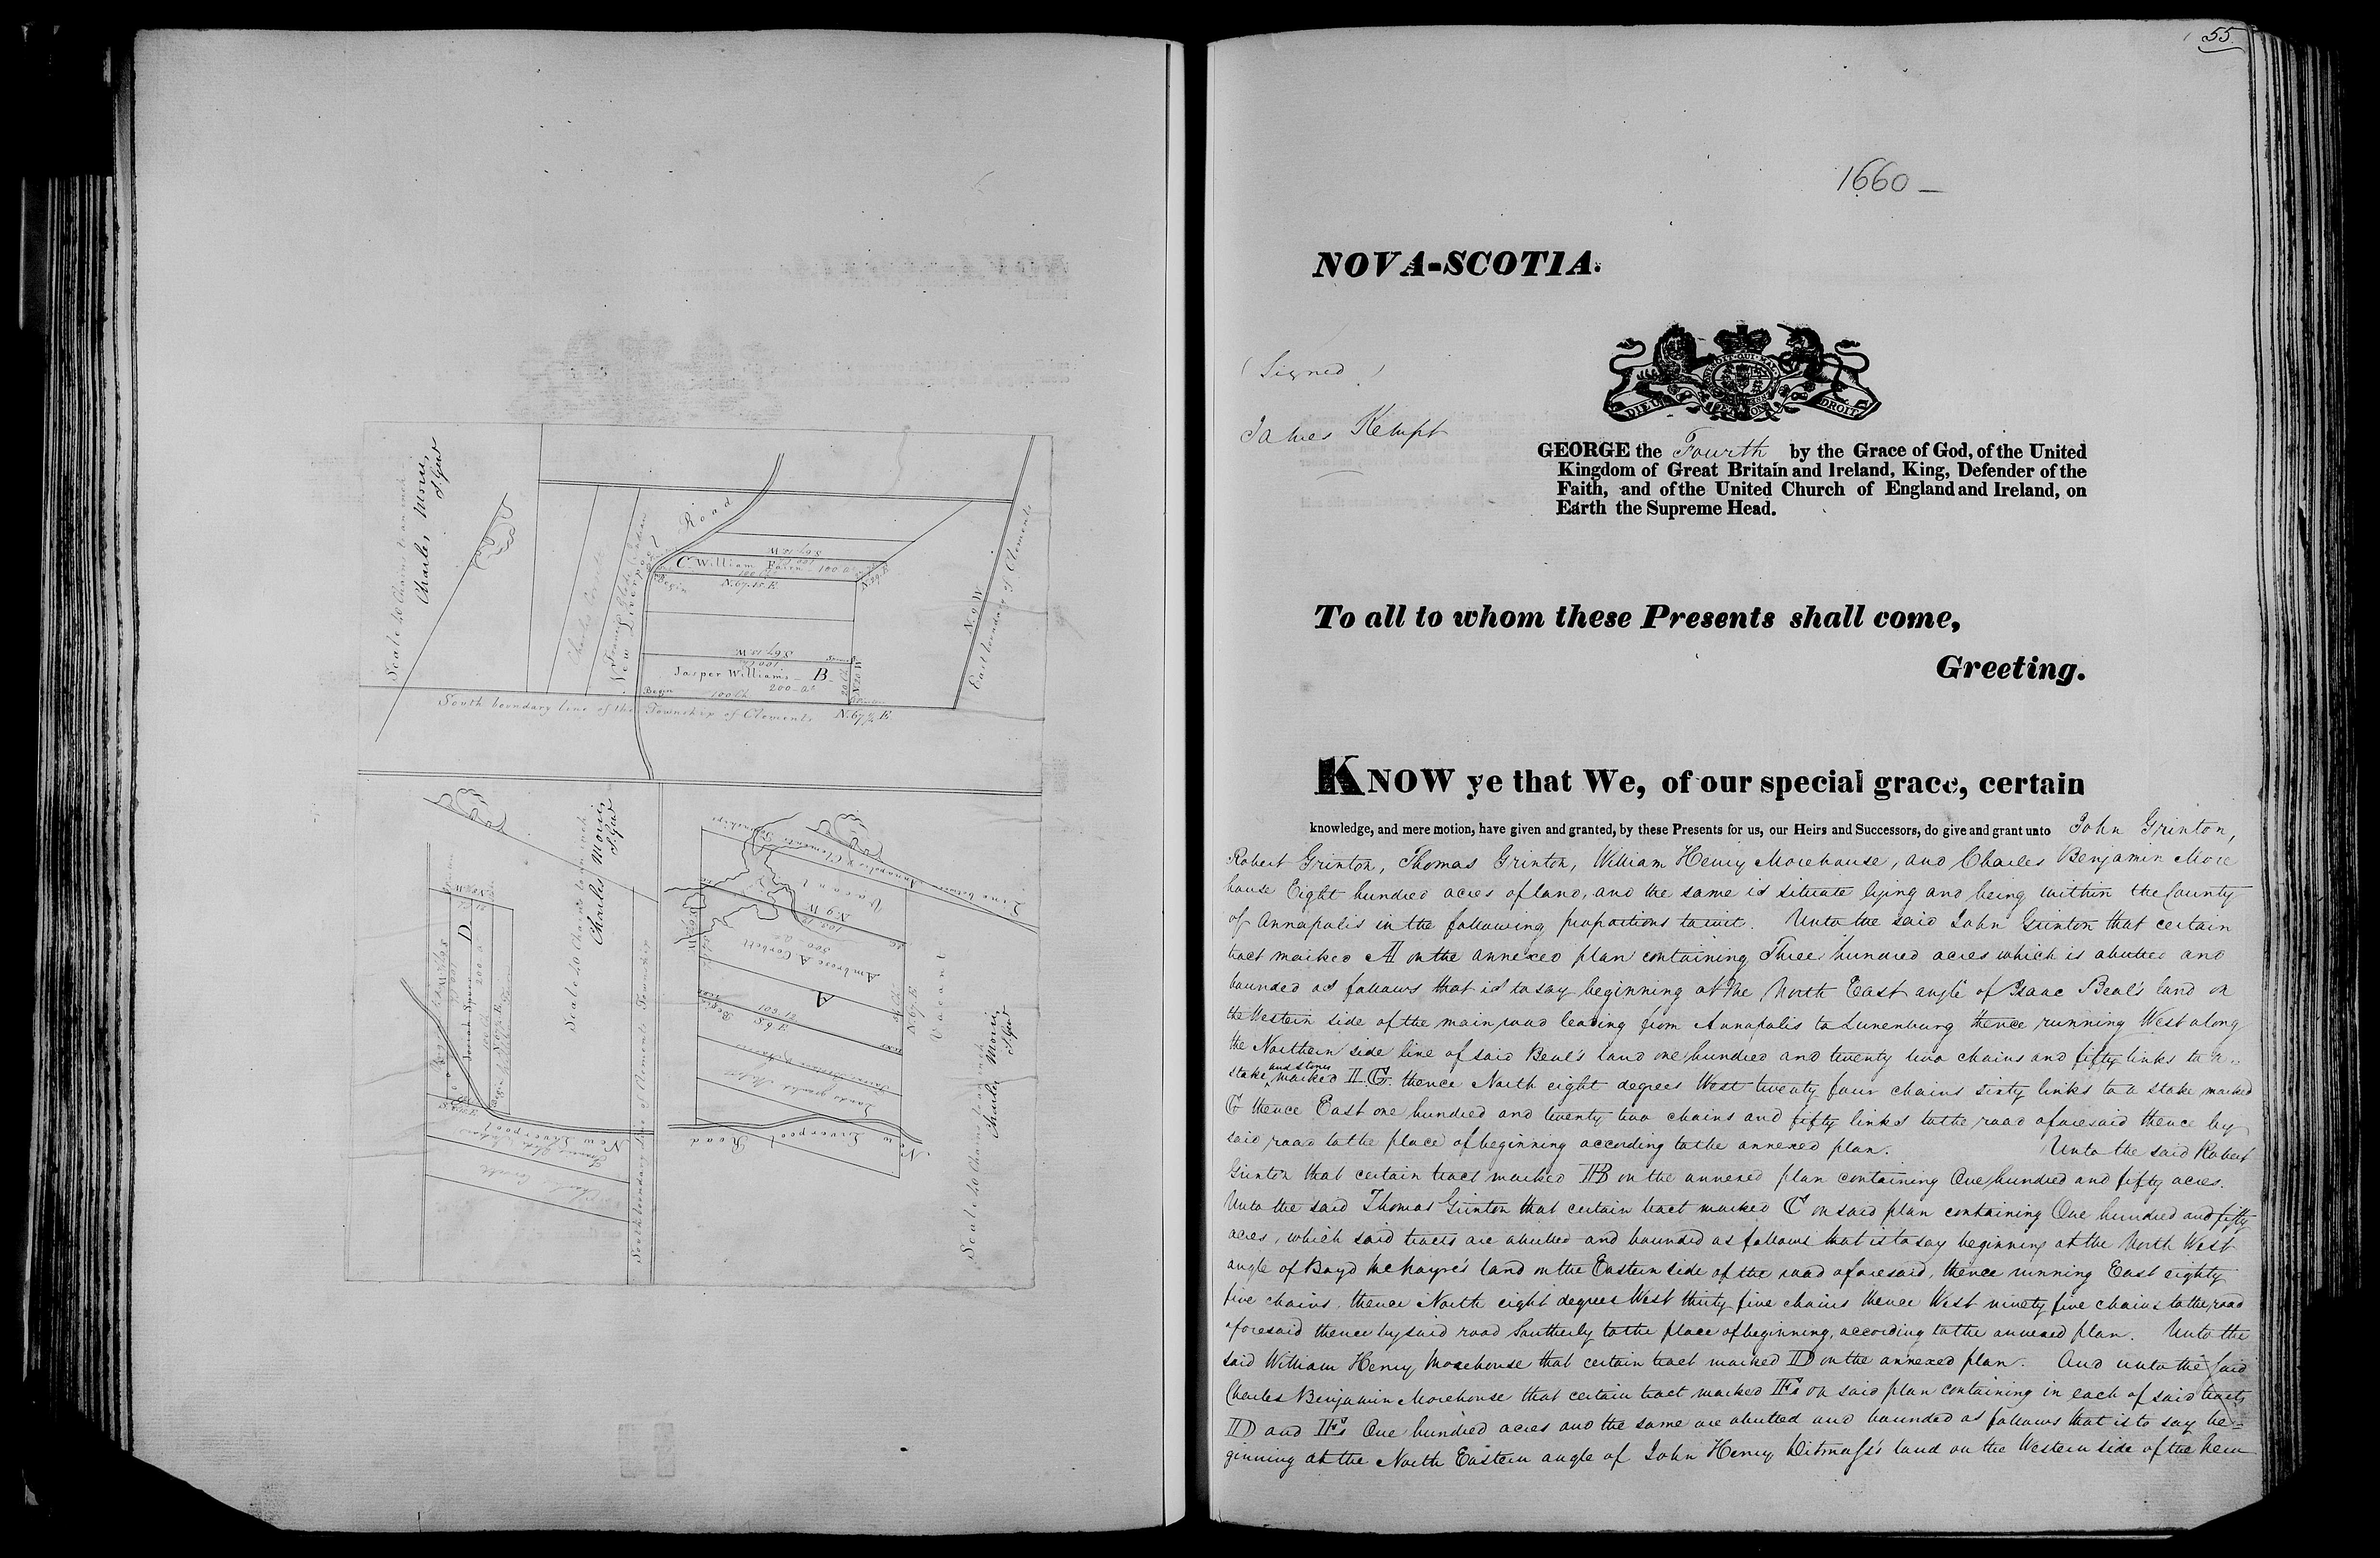 Scale 40 Chains to an inch
Charles Morris
S. Genl
Road
New Liverpool
C. William Fairn 100 As
S. 67.15. W.
100 Ch
N. 67.15. E.
Begin
S. 67.15. W.
100 Ch
Jasper Williams B
200 As
Begin
100 Ch
20 Ch
South boundary line of the Township of Clements
N. 9 W
East boundary of Clements
Scale 40 Chains to an inch
Charles Morris
S. Genl
D
Josiah Spurr
200 A
New Liverpool
South boundary line of Clements Township
Line between Annapolis & Clements Townships
Vacant
N. 9 W
Ambrose A Corbett
300 As
A
Vacant
N. 67. E.
Begin
New Liverpool Road
Scale 40 Chains to an inch
Charles Morris
S. Genl
55
1660 —
NOVA-SCOTIA.
(Signed)
James Kempt
DIEU ET MON DROIT
GEORGE the Fourth by the Grace of God, of the United
Kingdom of Great Britain and Ireland, King, Defender of the
Faith, and of the United Church of England and Ireland, on
Earth the Supreme Head.
To all to whom these Presents shall come,
Greeting.
KNOW ye that We, of our special grace, certain
knowledge, and mere motion, have given and granted, by these Presents for us, our Heirs and Successors, do give and grant unto John Grinton,
Robert Grinton, Thomas Grinton, William Henry Morehouse, and Charles Benjamin More
house Eight hundred acres of land, and the same is situate lying and being within the County
of Annapolis in the following proportions to wit. Unto the said John Grinton that certain
tract marked A on the annexed plan containing Three hundred acres which is abutted and
bounded as follows that is to say beginning at the North East angle of Isaac Beal's land on
the Western side of the main road leading from Annapolis to Lunenburg thence running West along
the Northern side line of said Beal's land one hundred and twenty two chains and fifty links to a
stake and stones marked II. G. thence North eight degrees West twenty four chains sixty links to a stake marked
G thence East one hundred and twenty two chains and fifty links to the road aforesaid thence by
said road to the place of beginning according to the annexed plan. Unto the said Robert
Grinton that certain tract marked B on the annexed plan containing One hundred and fifty acres.
Unto the said Thomas Grinton that certain tract marked C on said plan containing One hundred and fifty
acres, which said tracts are abutted and bounded as follows that is to say beginning at the North West
angle of Boyd McNayre's land on the Eastern side of the road aforesaid, thence running East eighty
five chains, thence North eight degrees West thirty five chains thence West ninety five chains to the road
aforesaid thence by said road Southerly to the place of beginning, according to the annexed plan. Unto the
said William Henry Morehouse that certain tract marked D on the annexed plan. And unto the said
Charles Benjamin Morehouse that certain tract marked on said plan containing in each of said tracts
D and One hundred acres and the same are abutted and bounded as follows that is to say be=
ginning at the North Eastern angle of John Henry Ditmars's land on the Western side of the New